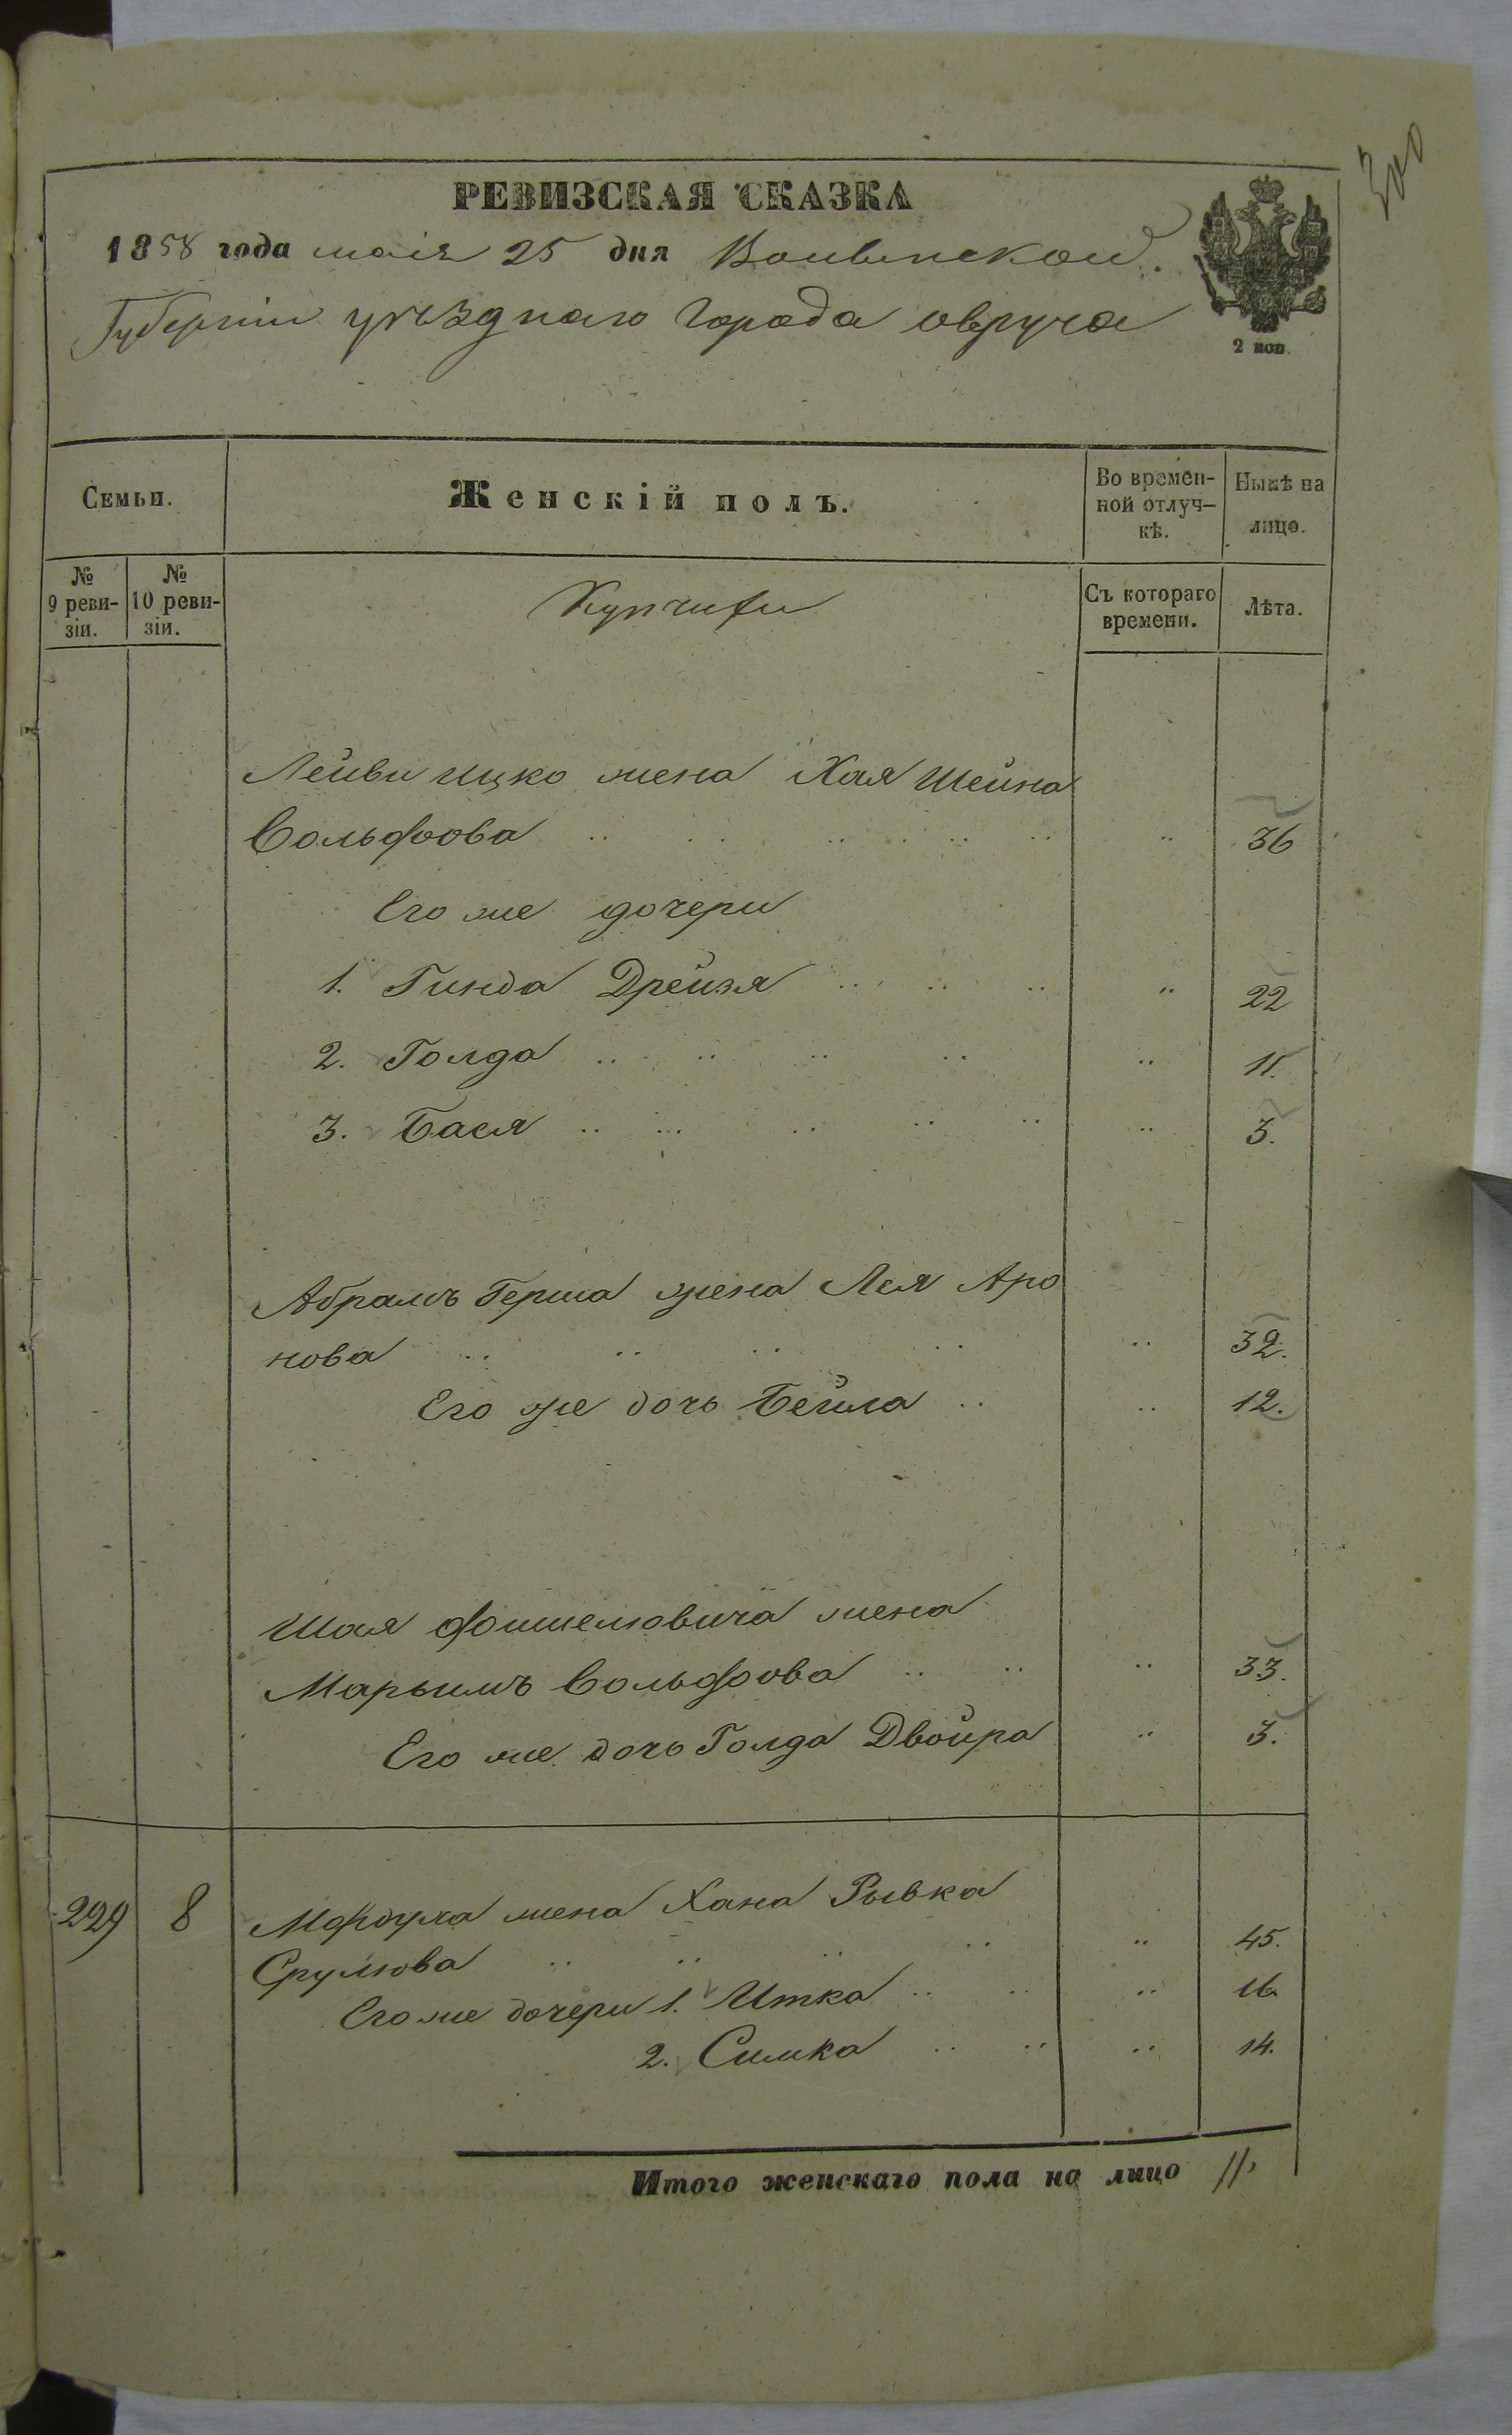 300
РЕВИЗСКАЯ СКАЗКА
1858 года маія 25 дня Волынской
Губерніи уѣзднаго города овруча
2 коп.
Семьи.
Женскій полъ.
Во времен-
ной отлуч-
кѣ.
Нынѣ на
лицо.
№
9 реви-
зіи.
№
10 реви-
зіи.
Купчихи
Съ котораго
времени.
Лѣта.
Лейви ицко жена Хая Шейна
Вольфова .. .. .. .. .. .. 36
Его же дочери
1. Гинда Дрейзя .. .. .. .. 22
2. Голда .. .. .. .. .. 11.
3. Бася .. .. .. .. .. .. 3.
Абрамъ Герша жена Лея Аро
нова .. .. .. .. .. 32.
Его же дочь Бейла .. .. 12.
Шая Фоишелювича жена
Марьимъ Вольфова .. .. .. 33.
Его же дочь Голда Двойра .. 3.
229 8 жена Хана Рывка
Срулюва .. .. .. .. .. 45.
Его же дочери 1. Итка .. .. .. 16
2. Симка .. .. .. 14.
Итого женскаго пола на лицо 11